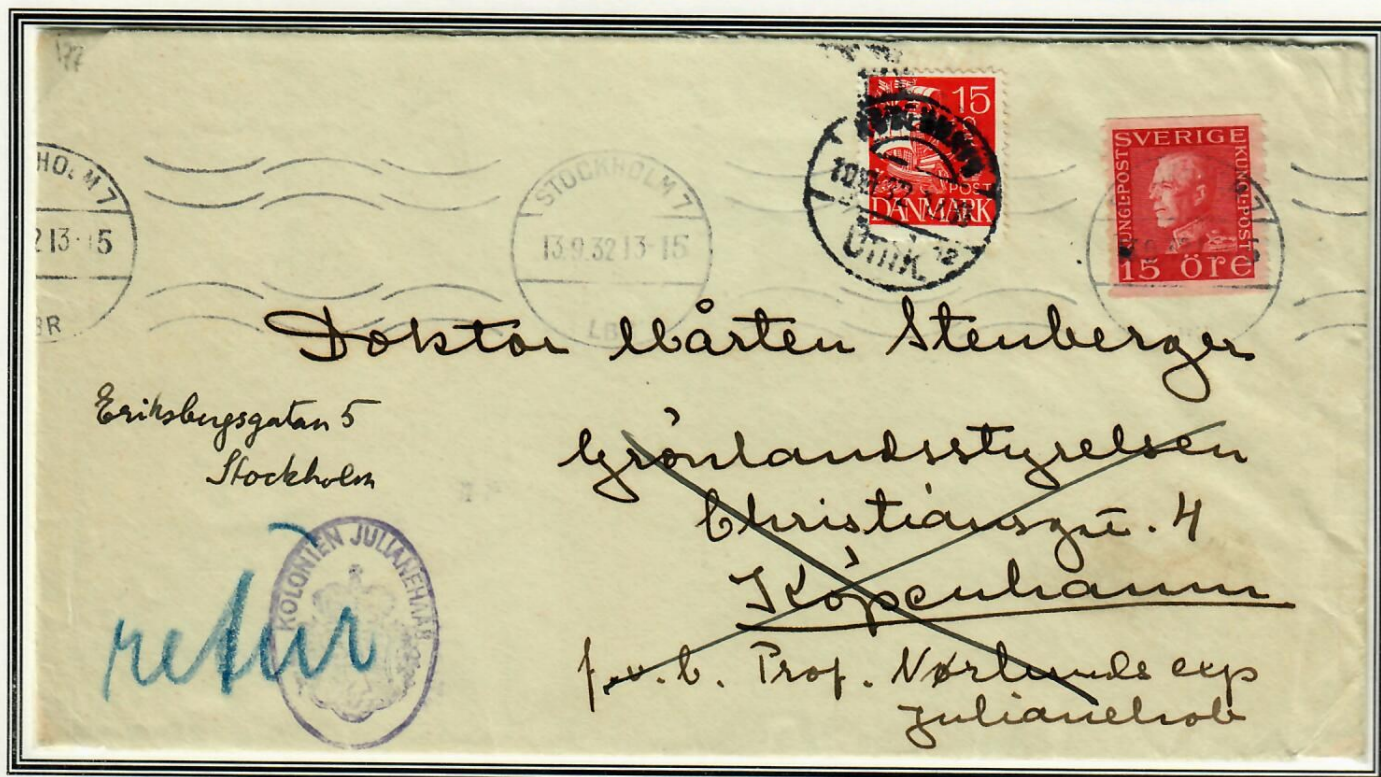 177
HOLM 7
2 13-15
BR
STOCKHOLM 7
13.9.32 13-15
LBR
15
POST
DANMARK
KØBENHAVN
OMK.
12
SVERIGE
KUNGL·POST
KUNGL·POST
15 öre
Doktor Mårten Stenberger
Eriksbergsgatan 5
Stockholm
Grönlandsstyrelsen
Christiansgt. 4
Köpenhamn
f.v.b. Prof. Nørlunds exp
Julianehob
retur
KOLONIEN JULIANEHAAB